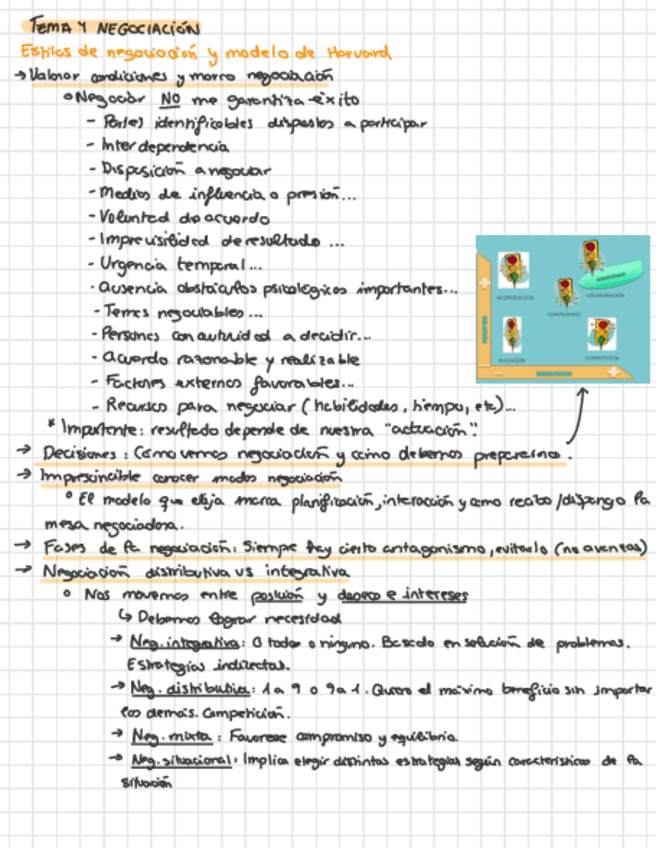 TEMA 4 NEGOCIACIÓN
Estilos de negociación y modelo de Harvard
→ Valorar condiciones y marco negociación
o Negociar NO me garantiza éxito
- Partes identificables dispuestas a participar
- Interdependencia
- Disposición a negociar
- Medios de influencia o presión...
- Voluntad de acuerdo
- Imprevisibilidad de resultado ...
- Urgencia temporal...
- Ausencia obstáculos psicológicos importantes...
- Temas negociables ...
- Personas con autoridad a decidir...
- Acuerdo razonable y realizable
- Factores externos favorables...
- Recursos para negociar (habilidades, tiempo, etc)...
* Importante: resultado depende de nuestra "actuación".
→ Decisiones: Cómo vemos negociación y cómo debemos prepararnos.
→ Imprescindible conocer modos negociación
o El modelo que elija marca planificación, interacción y como recibo/dispongo la
mesa negociadora.
→ Fases de la negociación: Siempre hay cierto antagonismo, evitarlo (no aventas)
→ Negociación distributiva vs integrativa
o Nos movemos entre posición y deseo e intereses
↳ Debemos lograr necesidad
→ Neg. integrativa: O todos o ninguno. Basado en solución de problemas.
Estrategias indirectas.
→ Neg. distributiva: 1 a 9 o 9 a 1. Quiero el máximo beneficio sin importar
los demás. Competición.
→ Neg. mixta: Favorece compromiso y equilibrio
→ Neg. situacional: Implica elegir distintas estrategias según características de la
situación
ACOMODACIÓN
COLABORACIÓN
COMPROMISO
EVITACIÓN
COMPETICIÓN